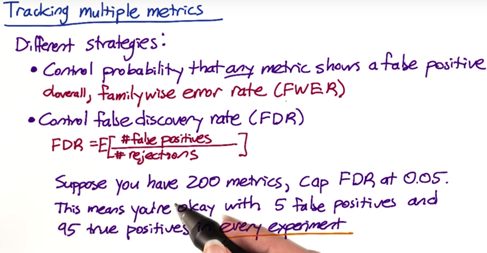 Tracking multiple metrics
Different strategies:
• Control probability that any metric shows a false positive
αoverall, familywise error rate (FWER)
• Control false discovery rate (FDR)
FDR = E[ #false positives / # rejections ]
Suppose you have 200 metrics, cap FDR at 0.05.
This means you're okay with 5 false positives and
95 true positives in every experiment